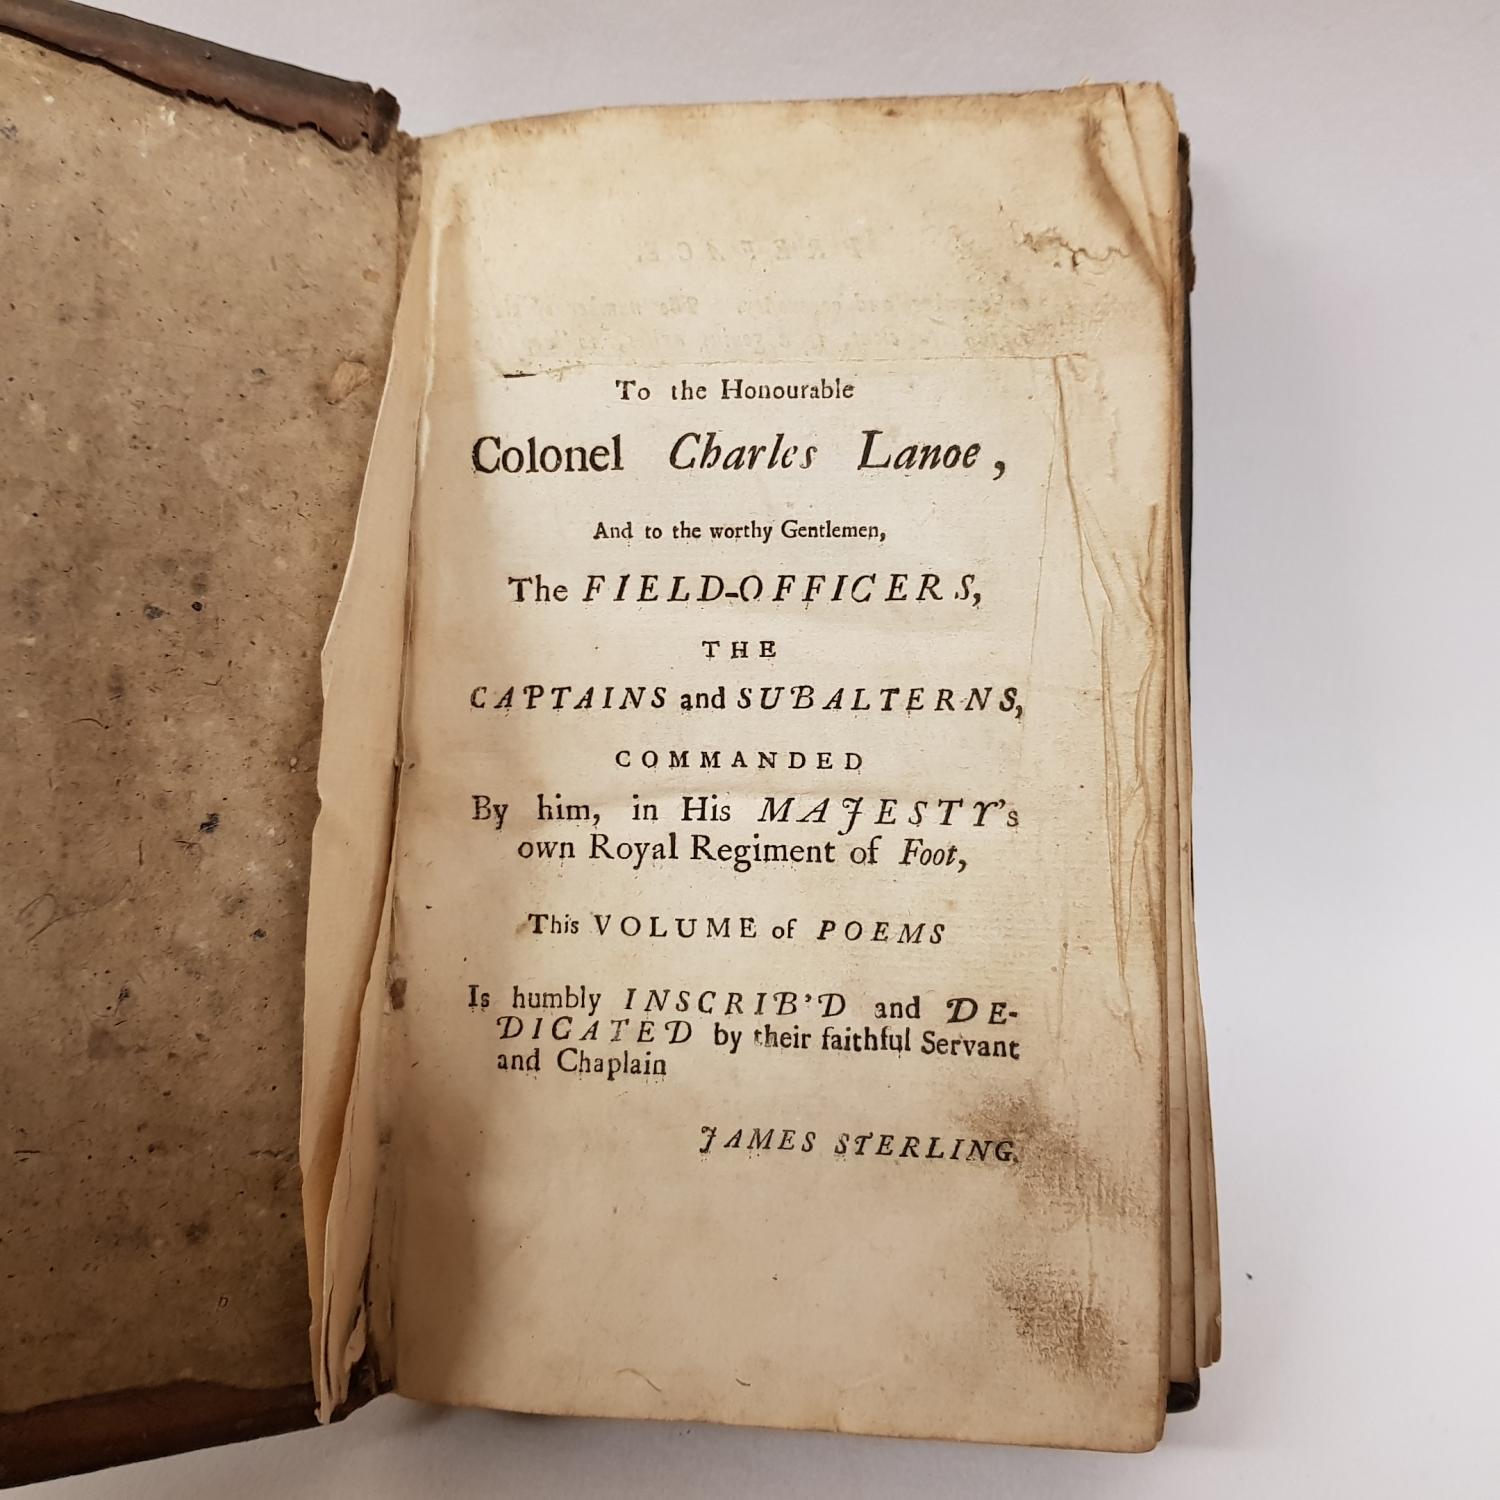 To the Honourable
Colonel Charles Lanoe,
And to the worthy Gentlemen,
The FIELD-OFFICERS,
THE
CAPTAINS and SUBALTERNS,
COMMANDED
By him, in His MAJESTY's
own Royal Regiment of Foot,
This VOLUME of POEMS
Is humbly INSCRIB'D and DE-
DICATED by their faithful Servant
and Chaplain
JAMES STERLING.